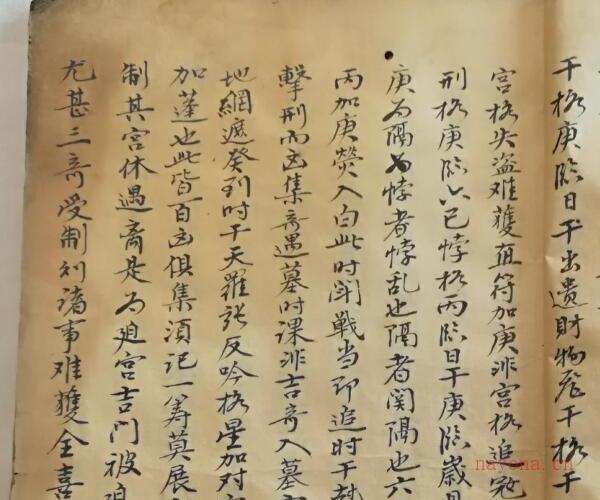 干格庚临日干出遗財物飛干格干
宫格失盗难獲直符加庚宫格追冦
刑格庚临六己悖格丙临日干庚临歲月
庚为隔为悖者悖乱也隔者関隔也六
丙加庚熒入白此时鬥戰当即追时干
擊刑而凶集奇遇墓时课非吉奇入墓
地網遮癸到时干天羅張反吟格星加对
加蓬也此皆百凶俱集須记一筹莫展
制其宫休遇离是为廹宫吉门被迫
尤甚三奇受制諸事难獲全喜
nayona.cn